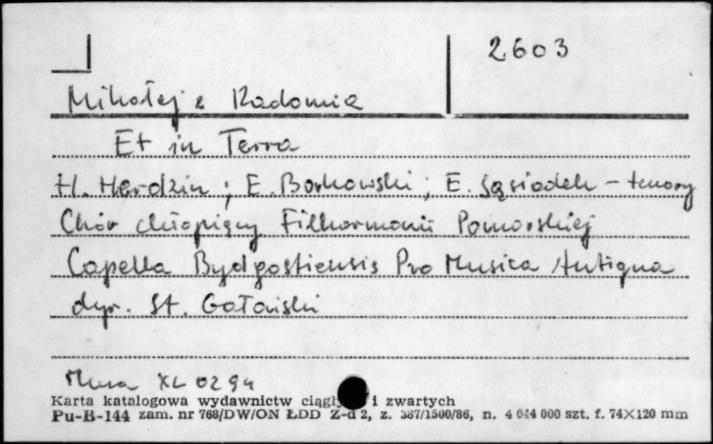 2603
Mikołaj z Radomia
Et in Terra
H. Herdzin; E. Borkowski; E. Sąsiadek - tenory
Chór chłopięcy Filharmonii Pomorskiej
Capella Bydgostiensis Pro Musica Antiqua
dyr. St. Gałoński
Muza XL 0294
Karta katalogowa wydawnictw i zwartych
Pu-B-144 zam. nr 768/DW/ON ŁDD Z-d 2, z. 387/1500/86, n. 4 044 000 szt. f. 74×120 mm